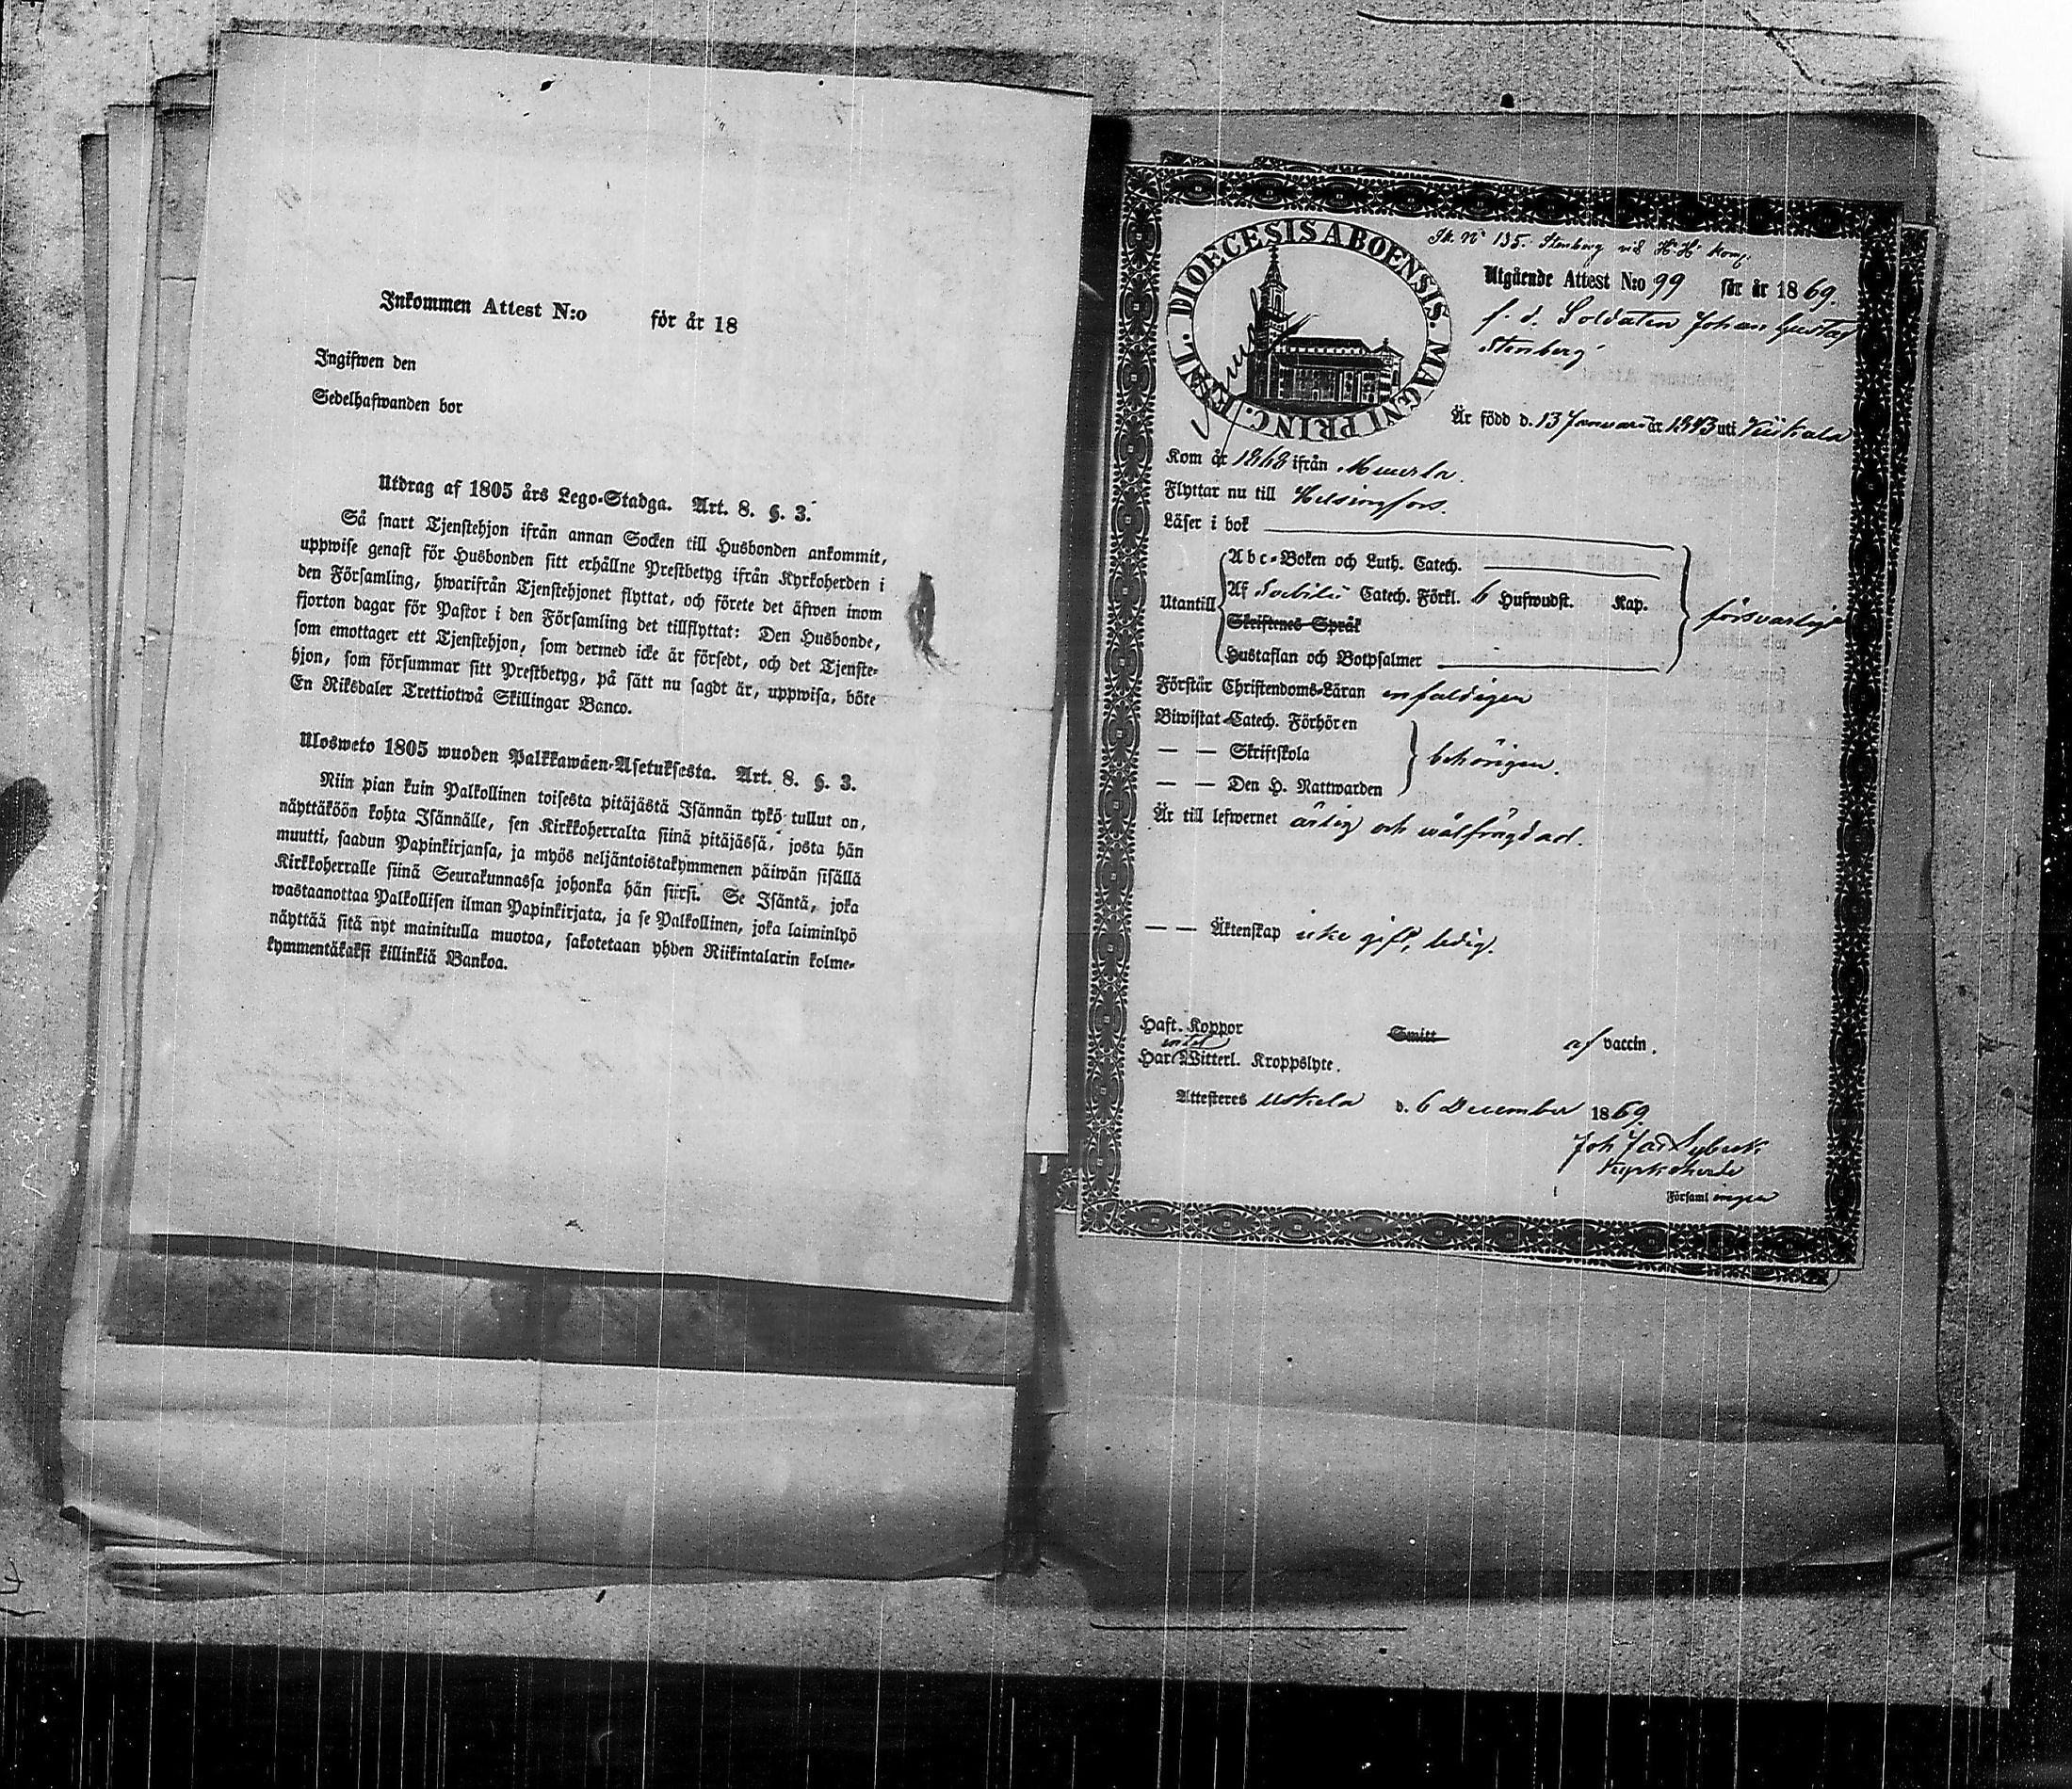 Inkommen Attest N:o för år 18
Ingifwen den
Sedelhafwanden bor
Utdrag af 1805 års Lego-Stadga. Art. 8. §. 3.
Så snart Tjenstehjon ifrån annan Socken till Husbonden ankommit,
uppwise genast för Husbonden sitt erhållne Prestbetyg ifrån Kyrkoherden i
den Församling, hwarifrån Tjenstehjonet flyttat, och förete det äfwen inom
fjorton dagar för Pastor i den Församling det tillflyttat: Den Husbonde,
som emottager ett Tjenstehjon, som dermed icke är försedt, och det Tjenste-
hjon, som försummar sitt Prestbetyg, på sätt nu sagdt är, uppwisa, böte
En Riksdaler Trettiotwå Skillingar Banco.
Ulosweto 1805 wuoden Palkkawäen-Asetuksesta. Art. 8. §. 3.
Niin pian kuin Palkollinen toisesta pitäjästä Isännän tykö tullut on,
näyttäköön kohta Isännälle, sen Kirkkoherralta siinä pitäjässä, josta hän
muutti, saadun Papinkirjansa, ja myös neljäntoistakymmenen päiwän sisällä
Kirkkoherralle siinä Seurakunnassa johonka hän siirsi. Se Isäntä, joka
wastaanottaa Palkollisen ilman Papinkirjata, ja se Palkollinen, joka laiminlyö
näyttää sitä nyt mainitulla muotoa, sakotetaan yhden Riikintalarin kolme-
kymmentäkaksi killinkiä Bankoa.
DIOECESIS ABOENSIS. MAGNI PRINC. FINL.
N:o 135. Stenberg vid H. H. Komp.
Utgående Attest N:o 99 för år 1869.
f. d. Soldaten Johan Gustaf
Stenberg
Är född d. 13 Januari år 1843 uti Kiikala
Kom år 1868 ifrån Muurla.
Flyttar nu till Helsingfors.
Läser i bok
Utantill
Abc-Boken och Luth. Catech.
Af Svebilii Catech. Förkl. 6 Hufwudst. Kap.
Skriftenes Språk
Hustaflan och Botpsalmer
försvarligen
Förstår Christendoms-Läran enfaldigen
Biwistat Catech. Förhören
— — Skriftskola
— — Den H. Nattwarden
behörigen.
Är till lefwernet ärlig och wälfrägdad.
— — Äktenskap icke gift, ledig.
Haft. Koppor Smitt af vaccin.
intet
Har Witterl. Kroppslyte.
Attesteres Uskela d. 6 December 1869.
Kyrkoherde
Församlingen